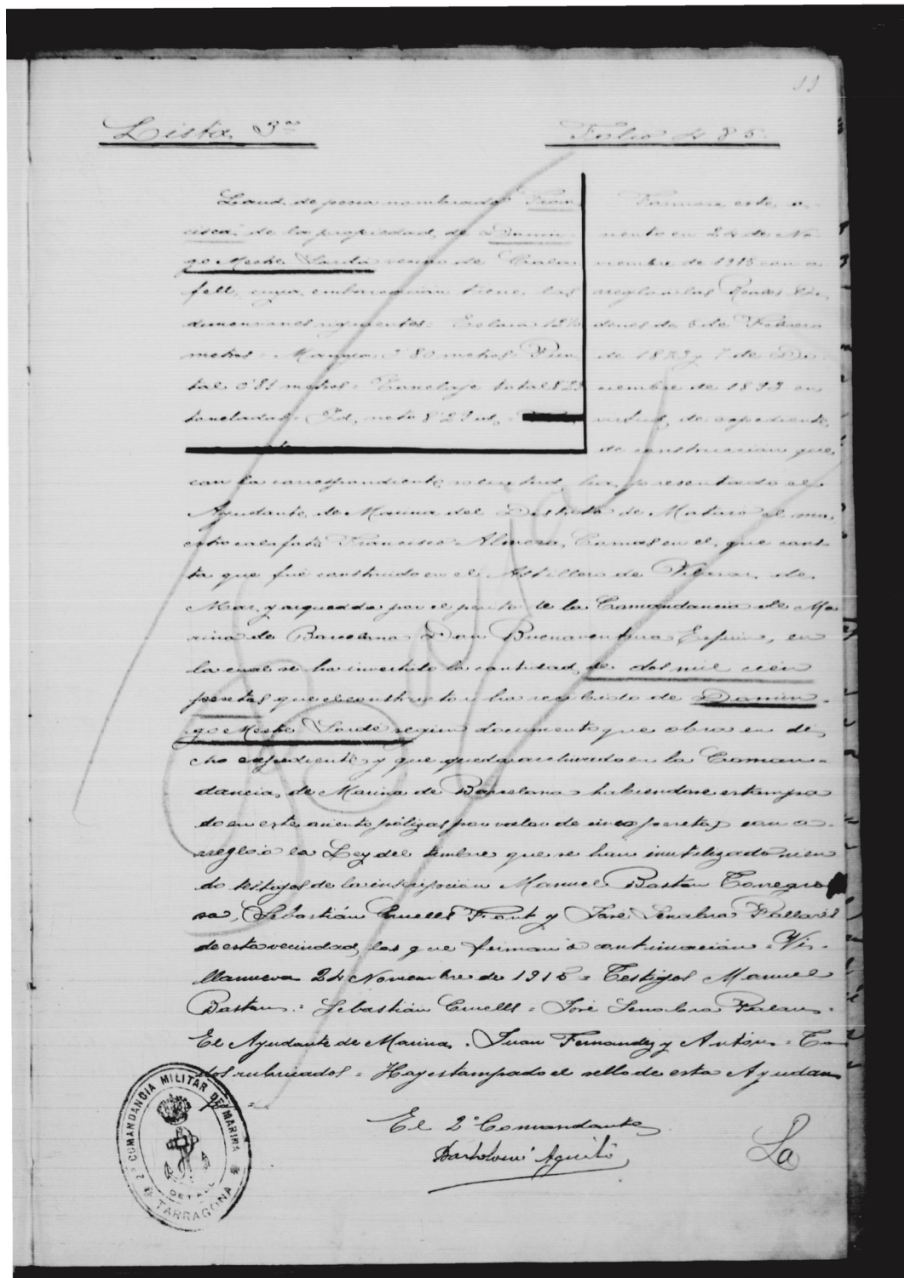 11
Lista 3ª
Folio 485.
Laud de pesca nombrado "Fran
cisca" de la propiedad de Domin
go Mestre Sardá vecino de Cala
fell, cuya embarcacion tiene las
dimensiones siguientes: Eslora
metros = Manga 2'80 metros = Pun
tal 0'81 metros = Tonelaje total 8'29
toneladas = Id. neto 8'29 id.
Formase este a
siento en 24 de No
viembre de 1915 con a
rreglo a las Reales Or
denes de 5 de Febrero
de 1873 y 7 de Di
ciembre de 1893 en
virtud de expediente
de construccion que,
con la correspondiente solicitud, ha presentado al
Ayudante de Marina del Distrito de Mataró el ma
estro calafate Francisco Almera Comas en el que cons
ta que fué construido en el Astillero de Vilasar de
Mar, y arqueada por el perito de la Comandancia de Ma
rina de Barcelona Don Buenaventura en
la cual se ha invertido la cantidad de dos mil cien
pesetas que el constructor ha recibido de Domin
go Mestre Sardá segun documento que obra en di
cho expediente y que queda archivado en la Coman
dancia de Marina de Barcelona habiendose estampa
do en este asiento pólizas por valor de cinco pesetas con a
rreglo a la Ley del timbre que se han inutilizado sien
do testigos de la inscripción Manuel Bastan Torregro
sa, Sebastián Cruells Font y José Senabra Pallarés
de esta vecindad, los que firman á continuación = Vi
llanueva 24 Noviembre de 1915 = Testigos Manuel
Bastan = Sebastián Cruells = José Senabra
El Ayudante de Marina = Juan Fernandez y Antón = To
dos rubricados = Hay estampado el sello de esta Ayudan
El 2º Comandante
Bartolomé Aguiló
La
Baja
2ª COMANDANCIA MILITAR DE MARINA
DETALL
TARRAGONA